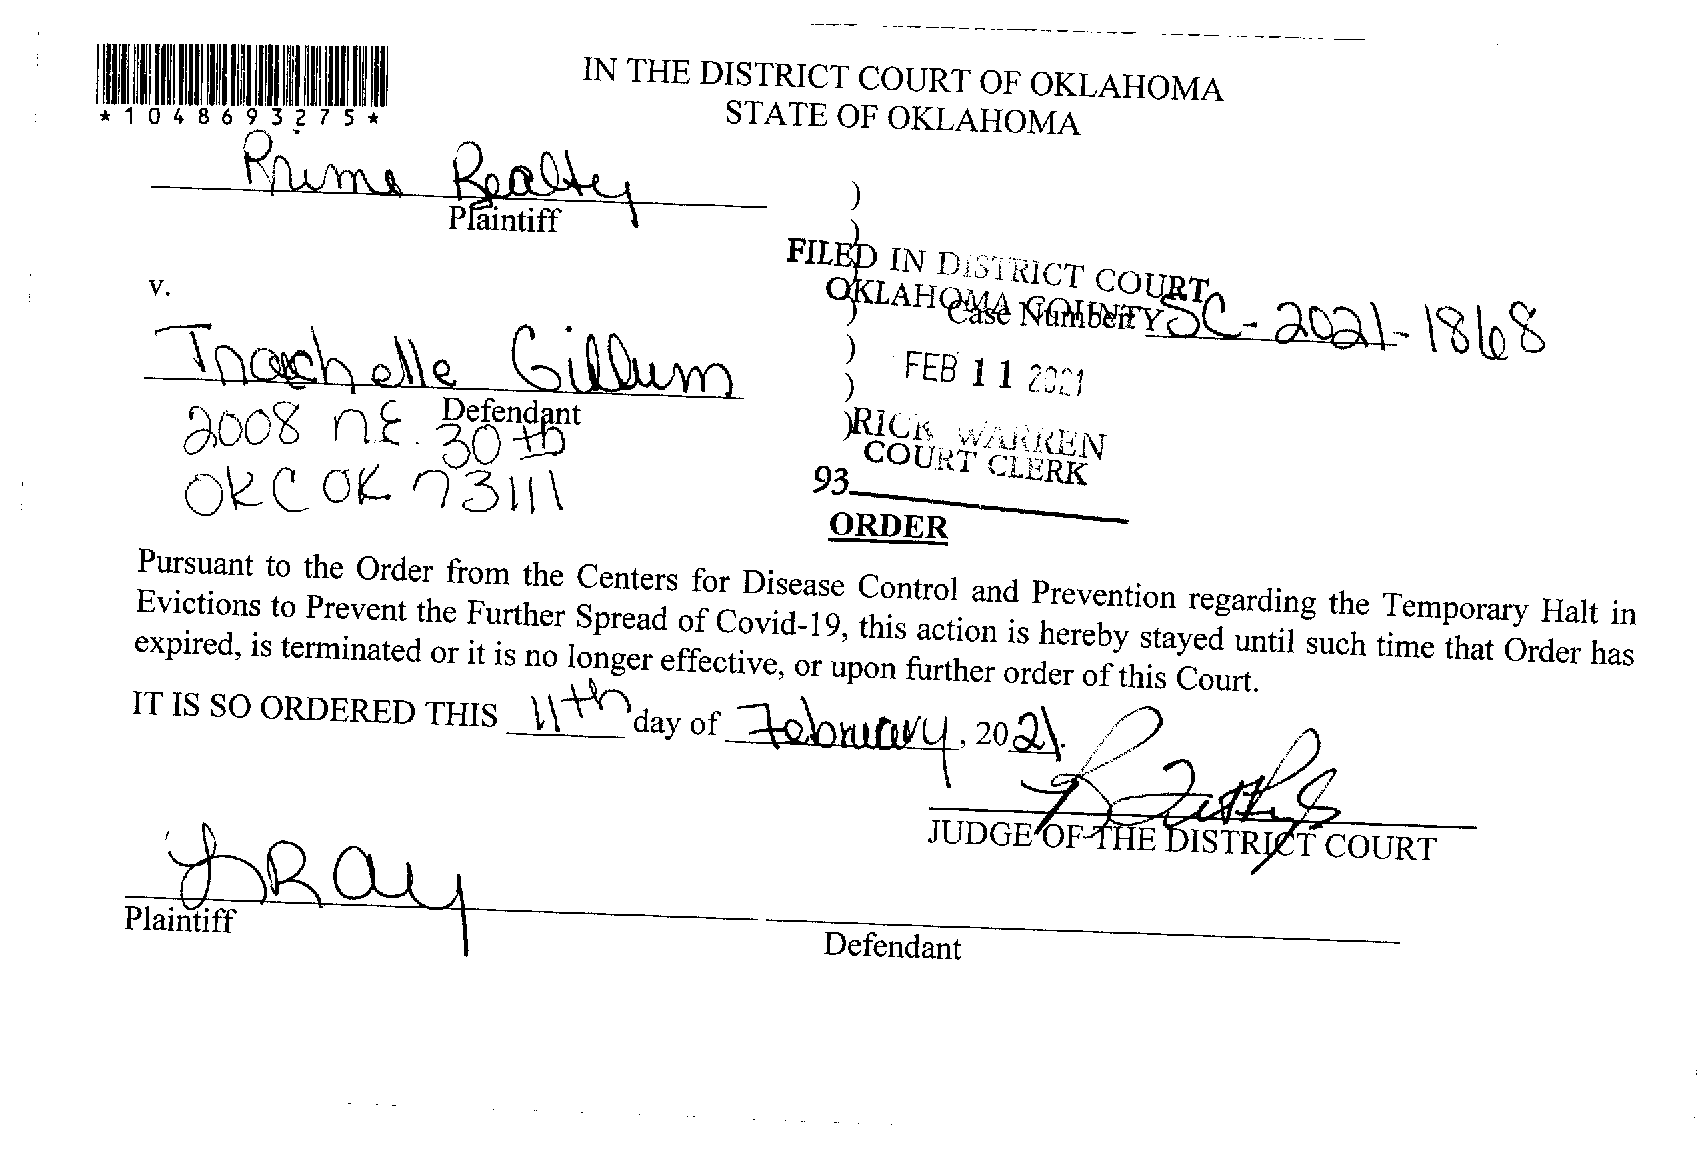 *1048693275*
IN THE DISTRICT COURT OF OKLAHOMA
STATE OF OKLAHOMA
Prime Realty
Plaintiff
v.
FILED IN DISTRICT COURT
OKLAHOMA COUNTY
Case Number SC-2021-1868
Gillum
Defendant
2008 N.E. 30th
OKC OK 73111
FEB 11 2021
RICK WARREN
COURT CLERK
93
ORDER
Pursuant to the Order from the Centers for Disease Control and Prevention regarding the Temporary Halt in
Evictions to Prevent the Further Spread of Covid-19, this action is hereby stayed until such time that Order has
expired, is terminated or it is no longer effective, or upon further order of this Court.
IT IS SO ORDERED THIS 11th day of February, 2021.
JUDGE OF THE DISTRICT COURT
Ray
Plaintiff
Defendant